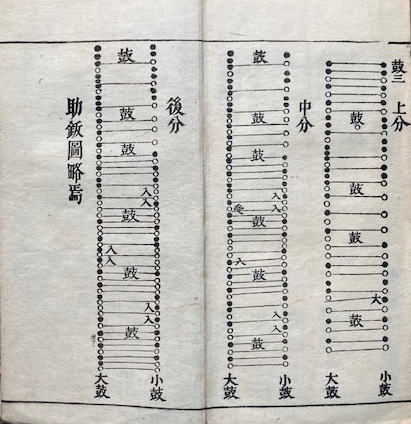 鼓三 上分
鼓
鼓
鼓
大
鼓
小鼓
大鼓
中分
鼓
鼓
鼓
入
入
鼓
入
鼓
入
入
鼓
小鼓
大鼓
後分
鼓
鼓
鼓
入
入
鼓
入
入
鼓
入
入
鼓
小鼓
大鼓
助鈸圖略焉